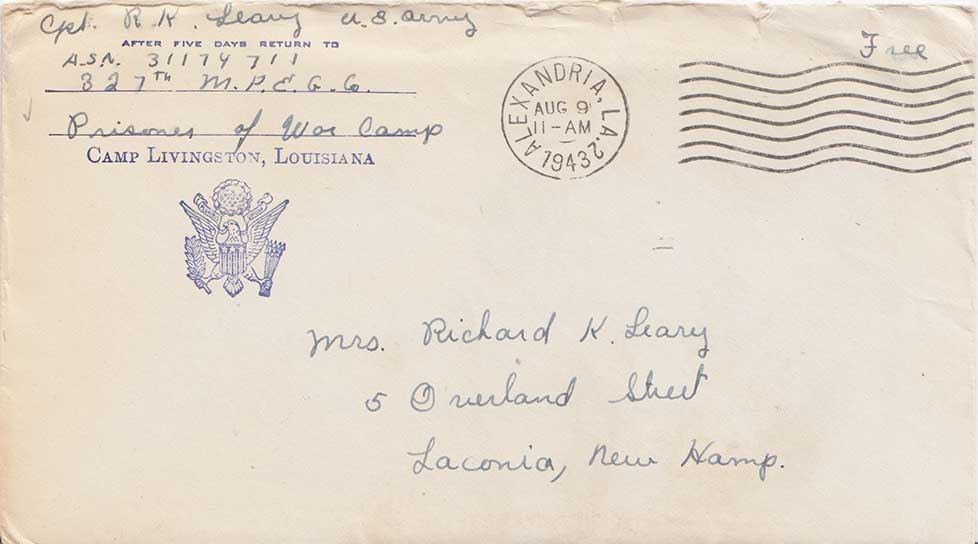 Cpl. R. K. Leary U.S. Army
AFTER FIVE DAYS RETURN TO
A.S.N. 31174711
327TH M.P.E.G. Co.
Prisoner of War Camp
CAMP LIVINGSTON, LOUISIANA
ALEXANDRIA, LA.
AUG 9
11-AM
1943
2
Free
Mrs. Richard K. Leary
5 Overland Street
Laconia, New Hamp.